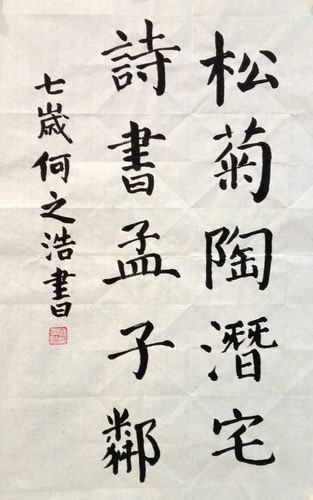 松菊陶潛宅
詩書孟子鄰
七歲何之浩書